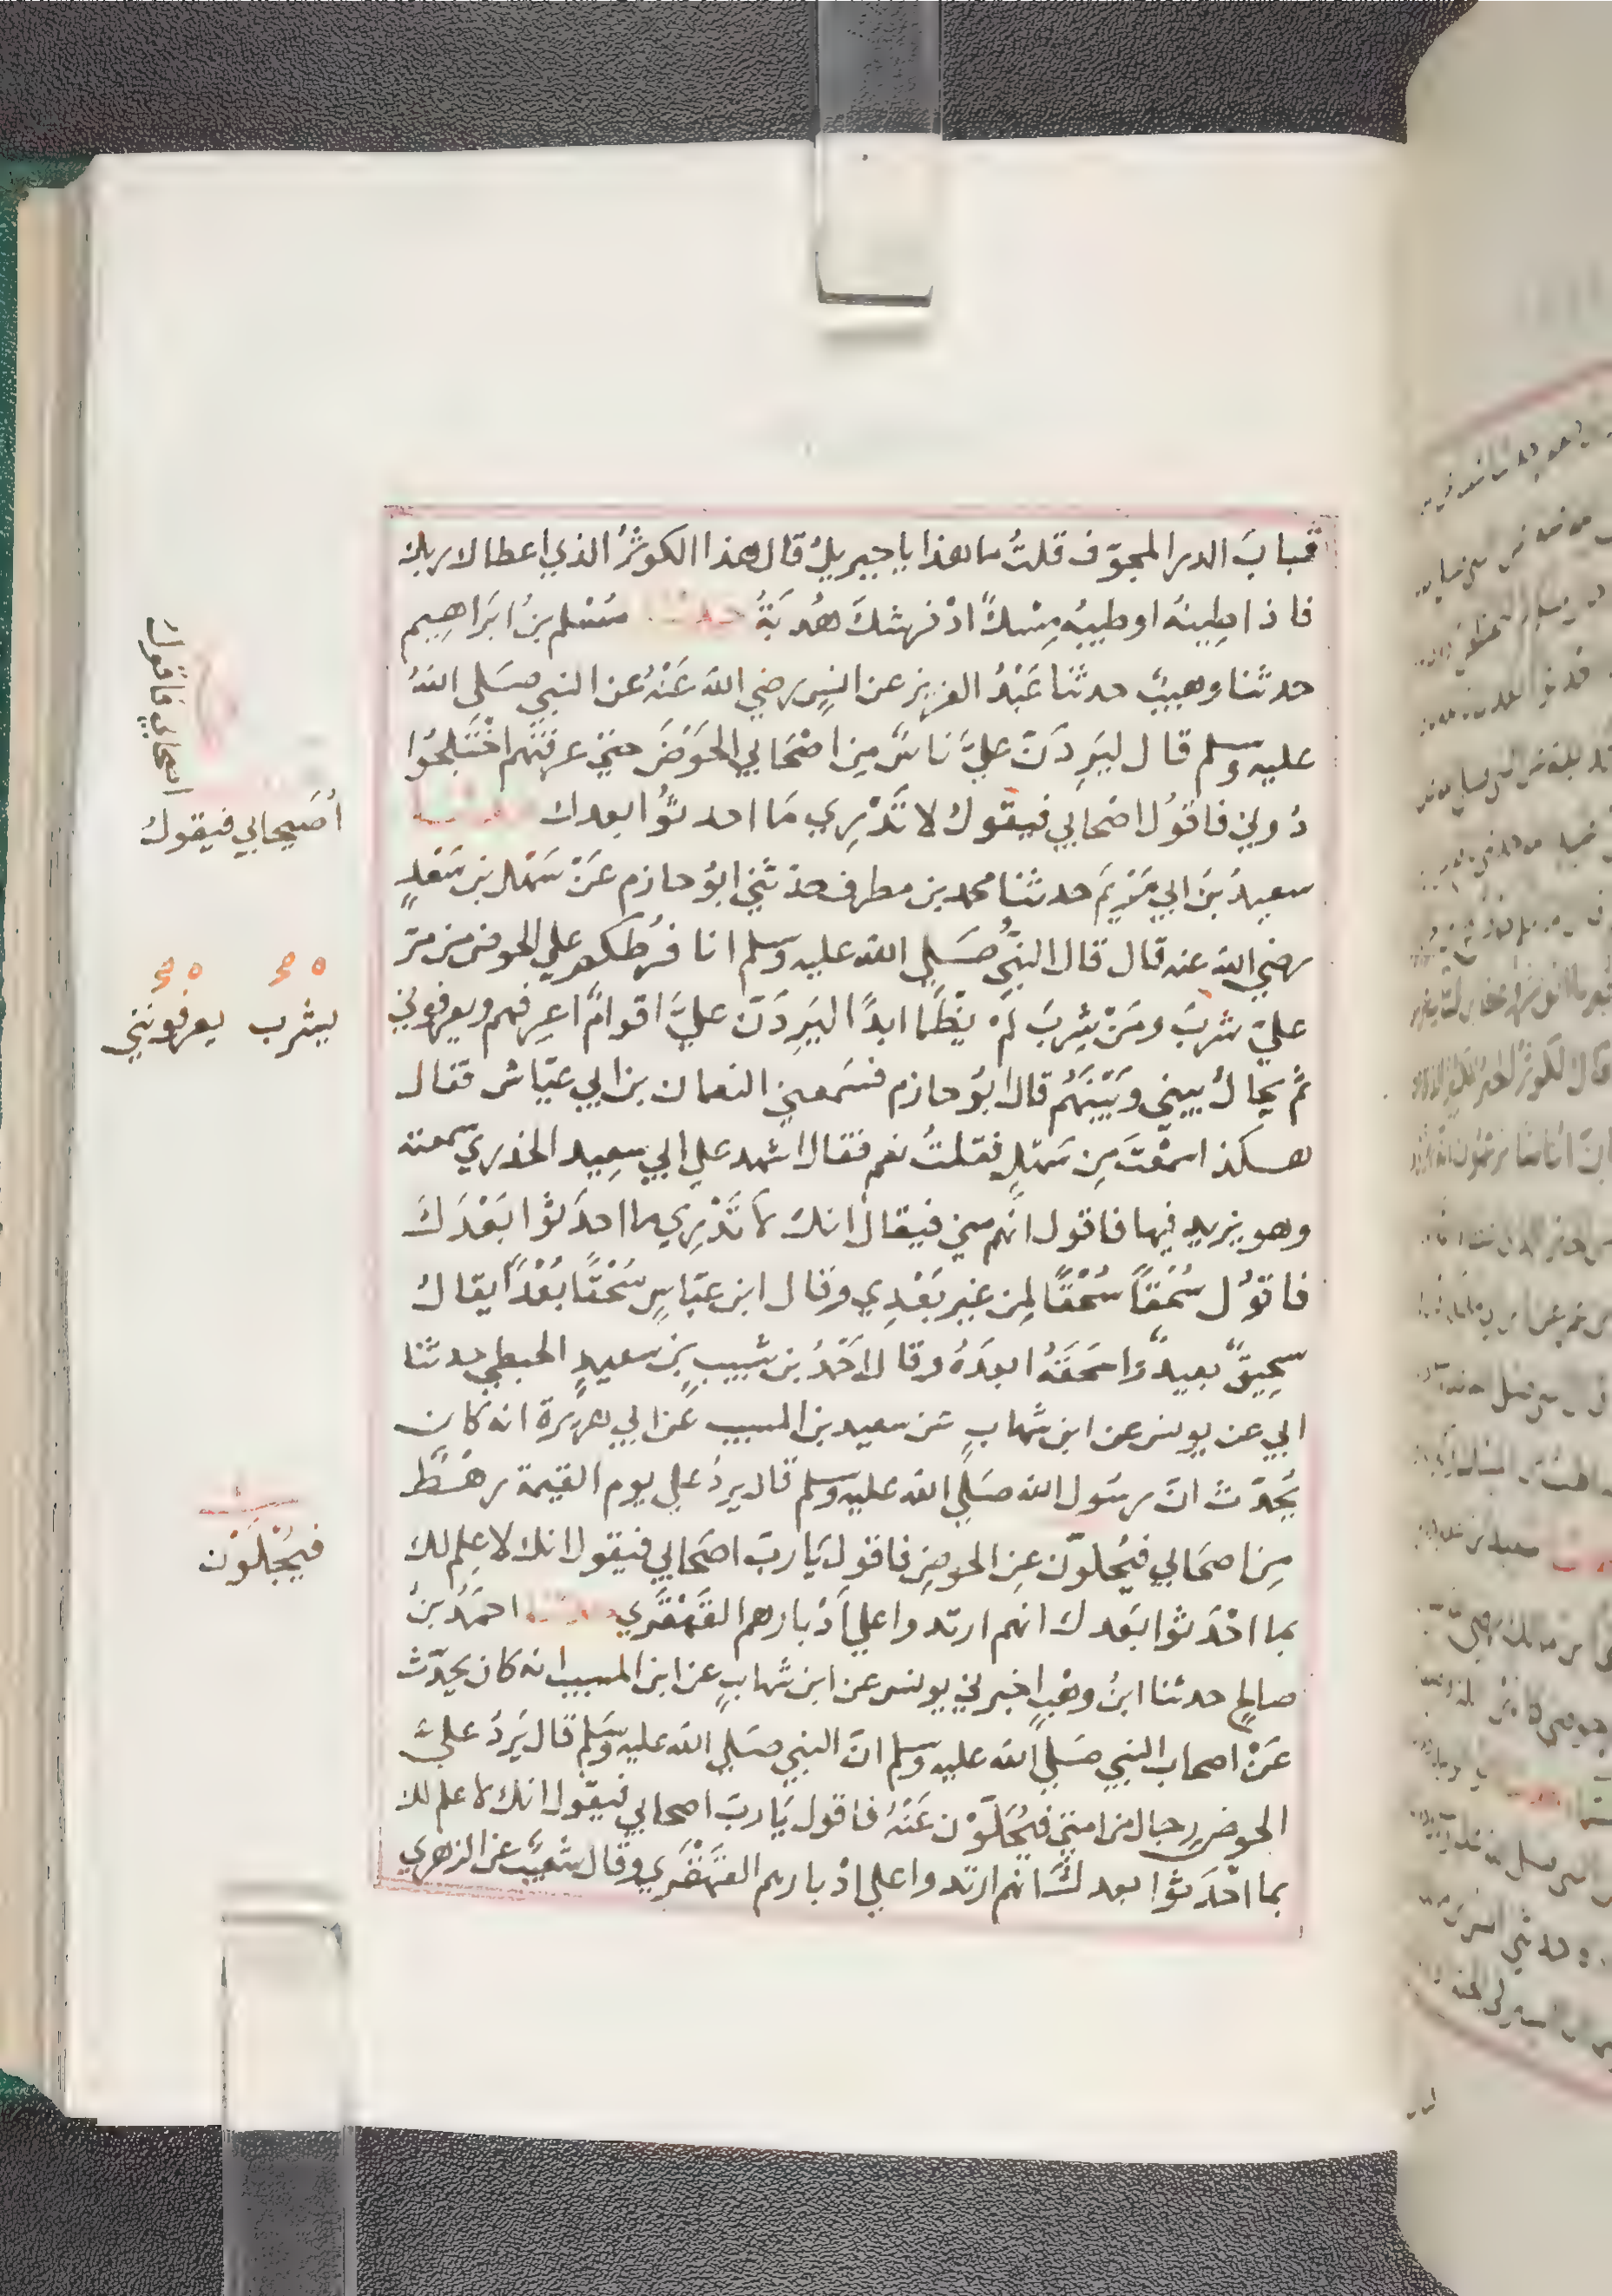 قباب الدر المجوف قلتُ ما هذا يا جبريل قال هذا الكوثرُ الذي اعطاك ربك
فاذا طِينهُ او طيبهُ مِسْكٌ اذفر شك هُدبَةُ حدثنا مُسْلم بنُ ابرَاهِيم
حدثنا وهيبٌ حدثنا عَبْدُ العزيز عن انسٍ رضي الله عَنْهُ عن النبي صَلي اللهُ
عليه وسلم قال ليَرِدَنّ عليَّ ناسٌ مِن اصْحَابي الحَوْضَ حتي عرفتهم اخْتُلجُوا
دُوني فاقُول اصْحابي فيقول لا تَدْرِي مَا احدثُوا بعدك حدثنا
سعيدُ بنُ ابي مَرْيمَ حدثنا محمد بن مطرف حدثني ابوُ حازم عَنْ سَهْل بن سَعْدٍ
رضي الله عنه قال قال النبيُّ صَلي الله عليه وسلم انا فرُطكم علي الحوض من مرّ
عليّ شربَ ومَنْ شِربَ لمْ يظْما ابدًا ليَرِدَنّ عليَّ اقوامٌ اعرِفهم ويعرفوني
ثمّ يحالُ بيني وَبَيْنَهُم قال ابوُ حازم فسَمعني النعمان بن ابي عيّاش فقال
هكذا سمعْتَ مِن سَهْلٍ فقلتُ نعم فقال اشهد علي ابي سعِيد الخدري سمعته
وهو يزيد فيها فاقول انهم مني فيقال انك لا تَدْرِي ما احدَثوا بَعْدَكَ
فاقوُل سُحْقًا سُحْقًا لمِن غير بَعْدِي وقال ابن عبّاسٍ سُحْقًا بُعْدًا يقال
سحِيقٌ بعيدٌ واسحَقَهُ ابعدَهُ وقال احَمَدُ بن شبيبٍ بن سعيدٍ الحبطي حدثنا
ابي عن يونس عن ابن شهابٍ عن سعيد بن المسيب عن ابي هريرة انه كان
يُحدّث انّ رسَول الله صَلي الله عليه وسلم قال يردُ علي يوم القيمة رهْطٌ
مِن اصحَابي فيُحلوّن عنِ الحوضِ فاقول يَا ربّ اصحَابي فيقول انك لا علِم لك
بما احْدَثوا بَعدك انهم ارتدوا علي اَدْبارهم القَهْقَري حدثنا احمَدُ بنُ
صالح حدثنا ابنُ وهْبٍ اخبرني يونس عن ابن شهابٍ عن ابن المسيب انه كان يحدّث
عَنْ اصحاب النبي صَلي الله عليه وسلم انّ النبي صَلي الله عليه وسَلم قال يَردُ عليّ
الحوضَ رجال من امتي فيُحَلّوْن عَنْهُ فاقول يَا ربّ اصحابي فيقول انك لا علم لك
بما احْدَثوا بعدك انهم ارتدوا علي ادْبارهم القهْقَري وقال شعيبٌ عن الزهري
اصحابي فاقول
أصَيحابي فيقول
يشرب
يعرفونني
فيُجْلَوْن